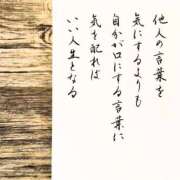 他人の言葉を
気にするよりも
自分が口にする言葉に
気を配れば
いい人生となる